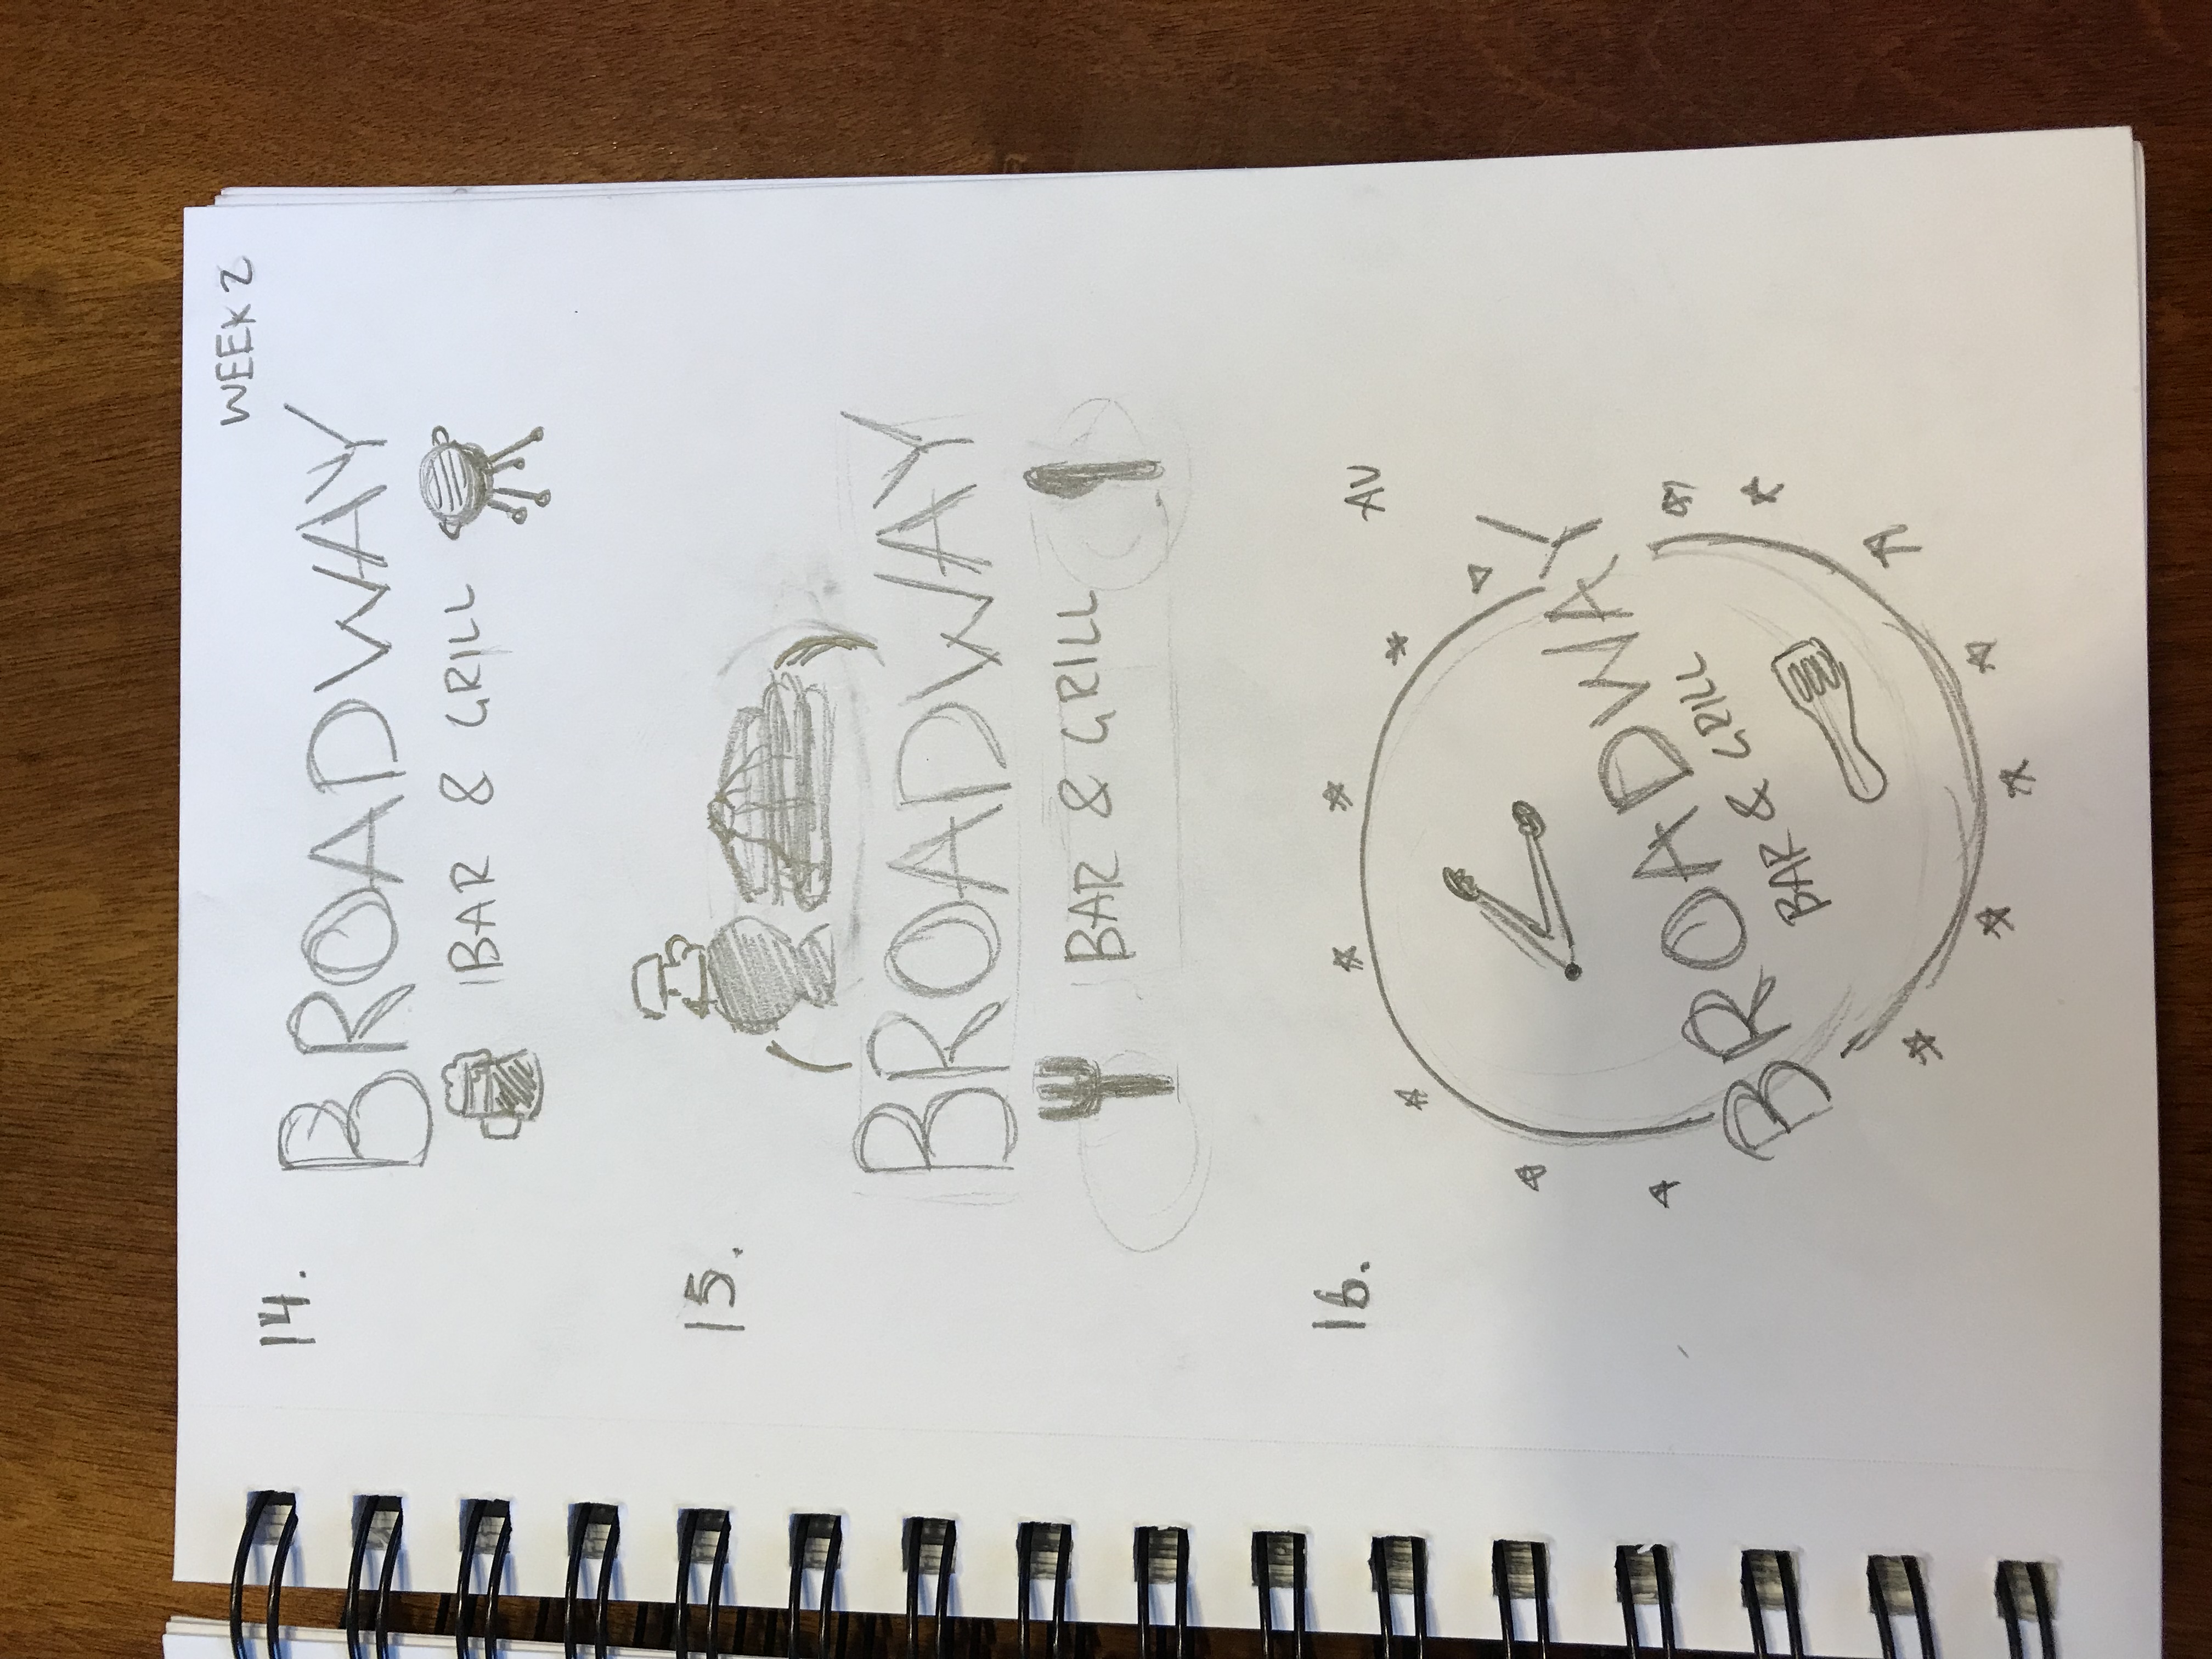 WEEK 2
14.
BROADWAY
BAR & GRILL
15.
BROADWAY
BAR & GRILL
16.
AV
BROADWAY
BAR & GRILL